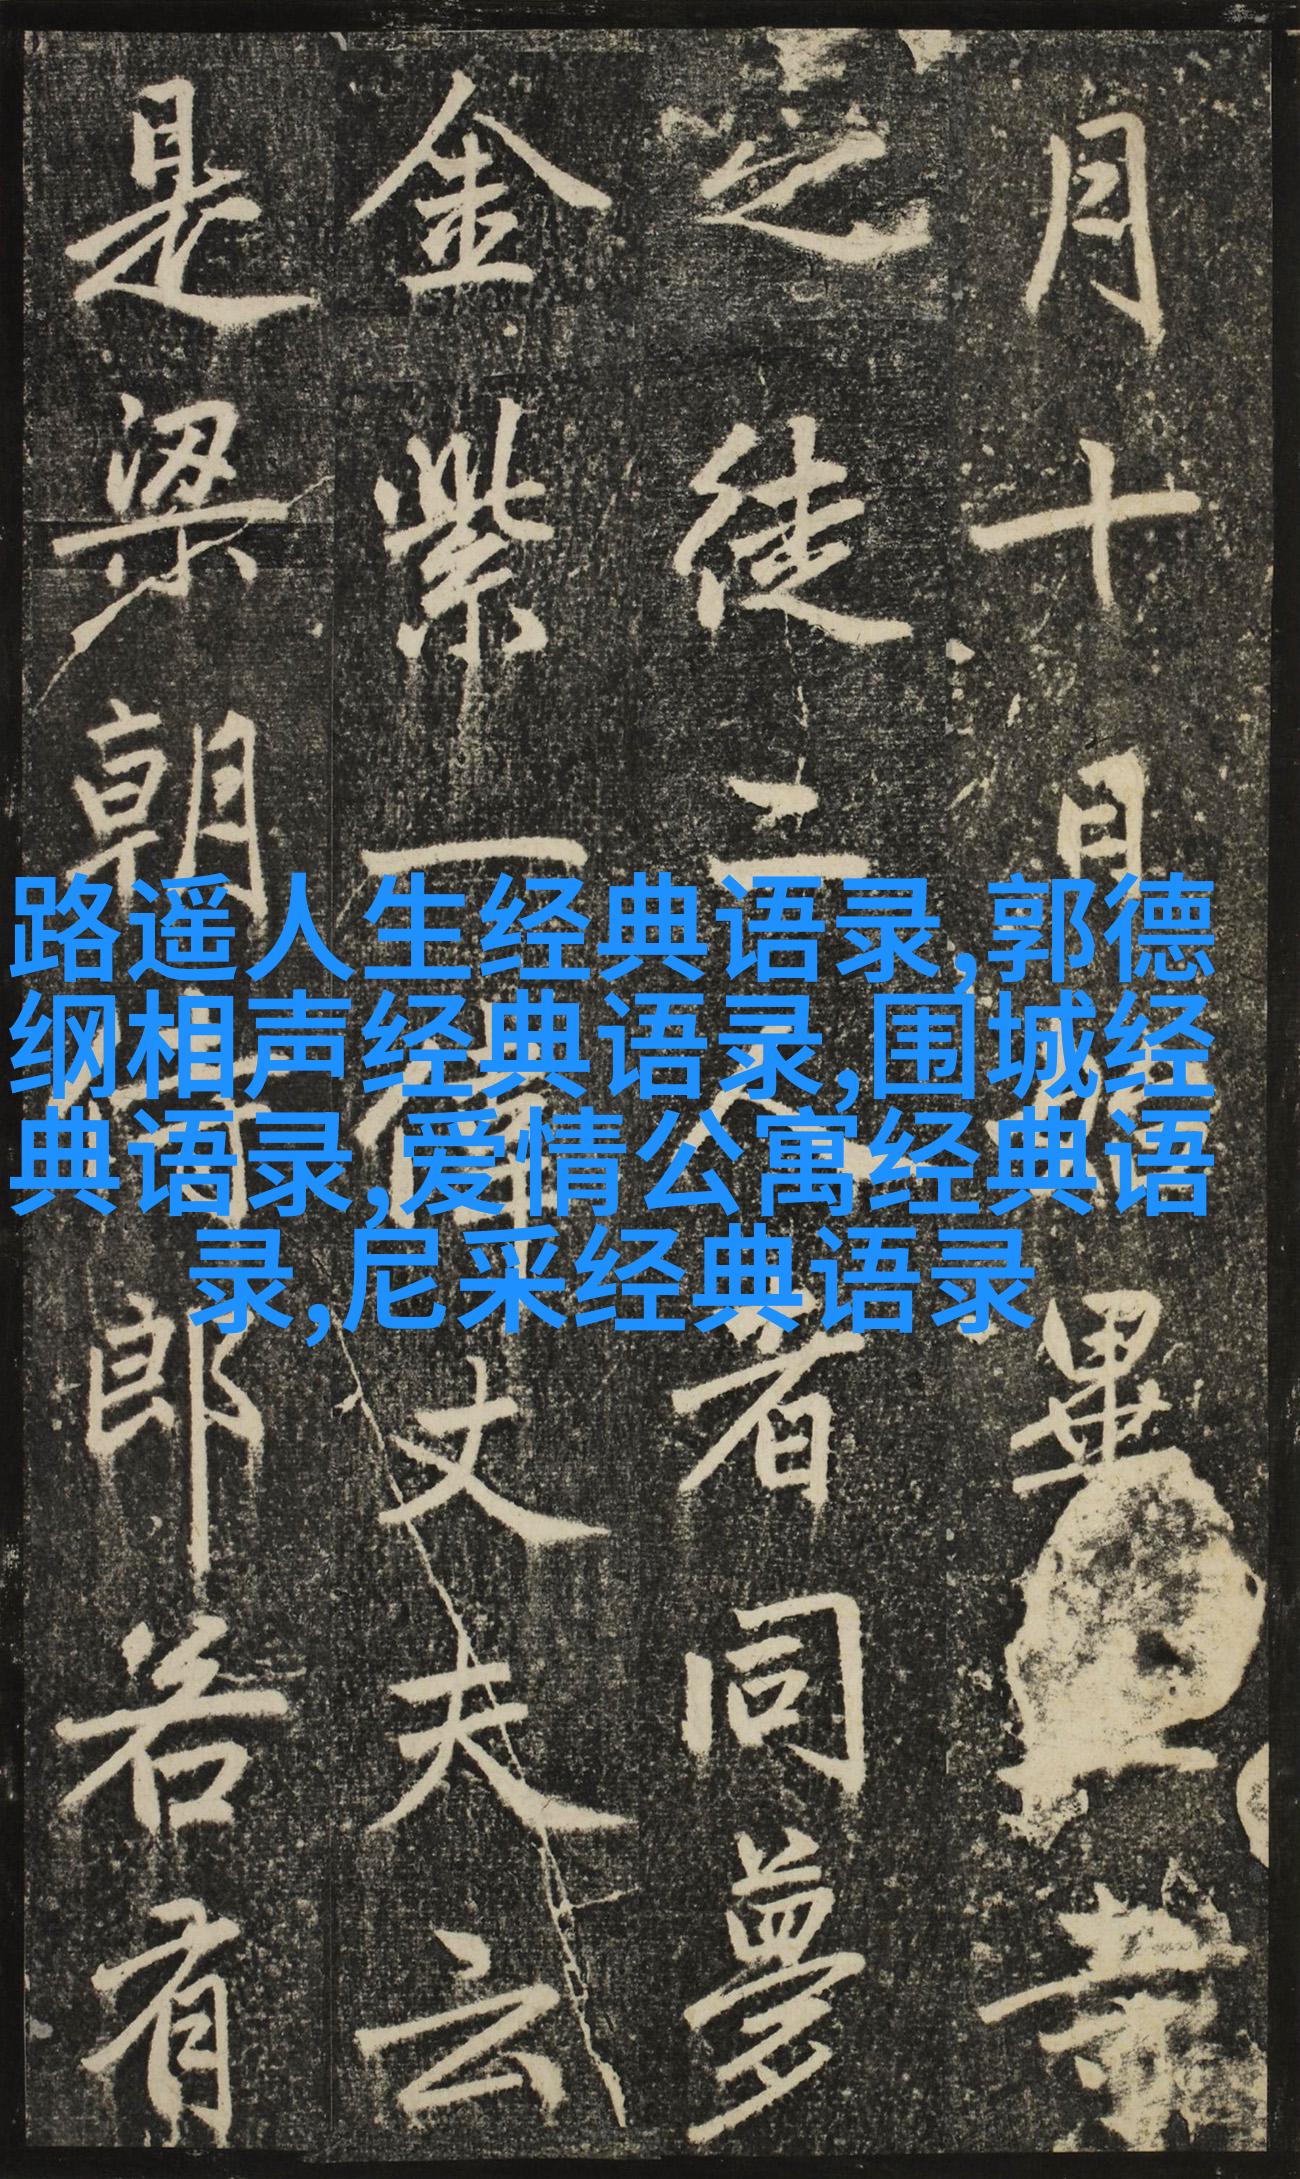 月十日畢
之徒二人者同夢
金紫一偉丈夫云
是梁朝郎若有
路遥人生经典语录,郭德
纲相声经典语录,围城经
典语录,爱情公寓经典语
录,尼采经典语录